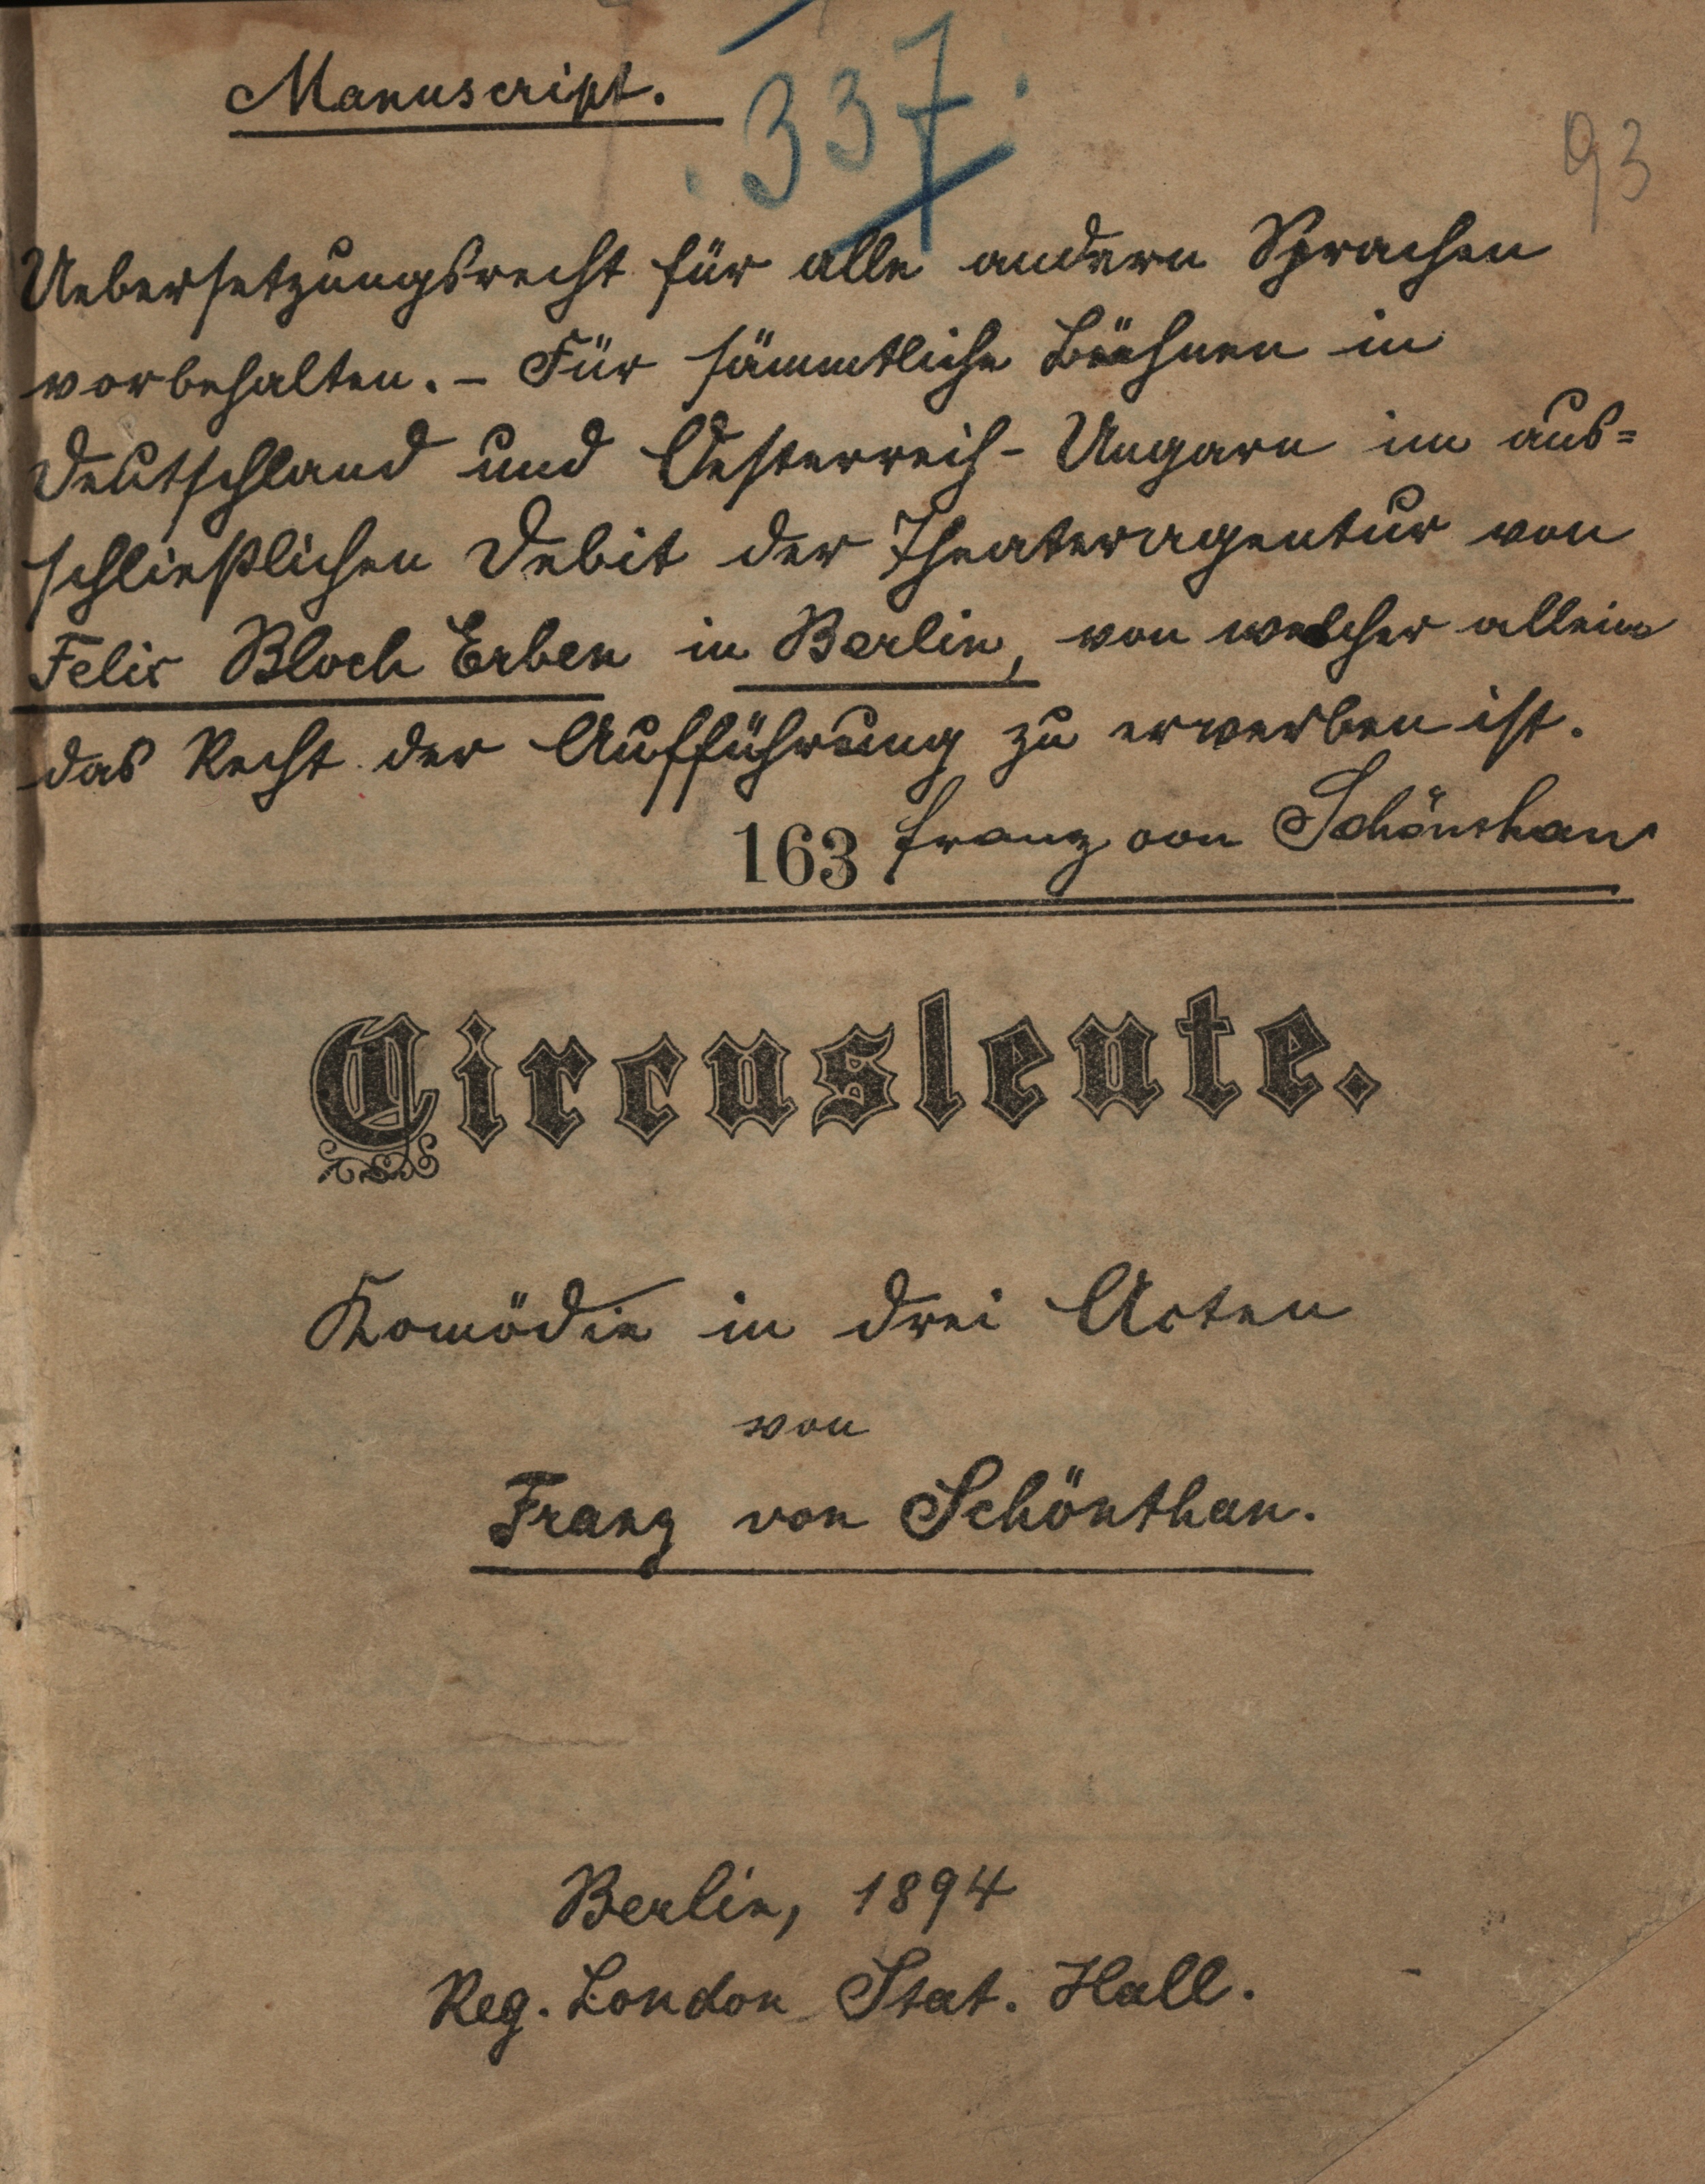 Manuscript.
337.
93
Uebersetzungsrecht für alle andern Sprachen
vorbehalten. – Für sämmtliche Bühnen in
Deutschland und Oesterreich-Ungarn im aus=
schließlichen Debit der Theateragentur von
Felix Bloch Erben in Berlin, von welcher allein
das Recht der Aufführung zu erwerben ist.
163 Franz von Schönthan
Circusleute.
Komödie in drei Acten
von
Franz von Schönthan.
Berlin, 1894
Reg. London Stat. Hall.